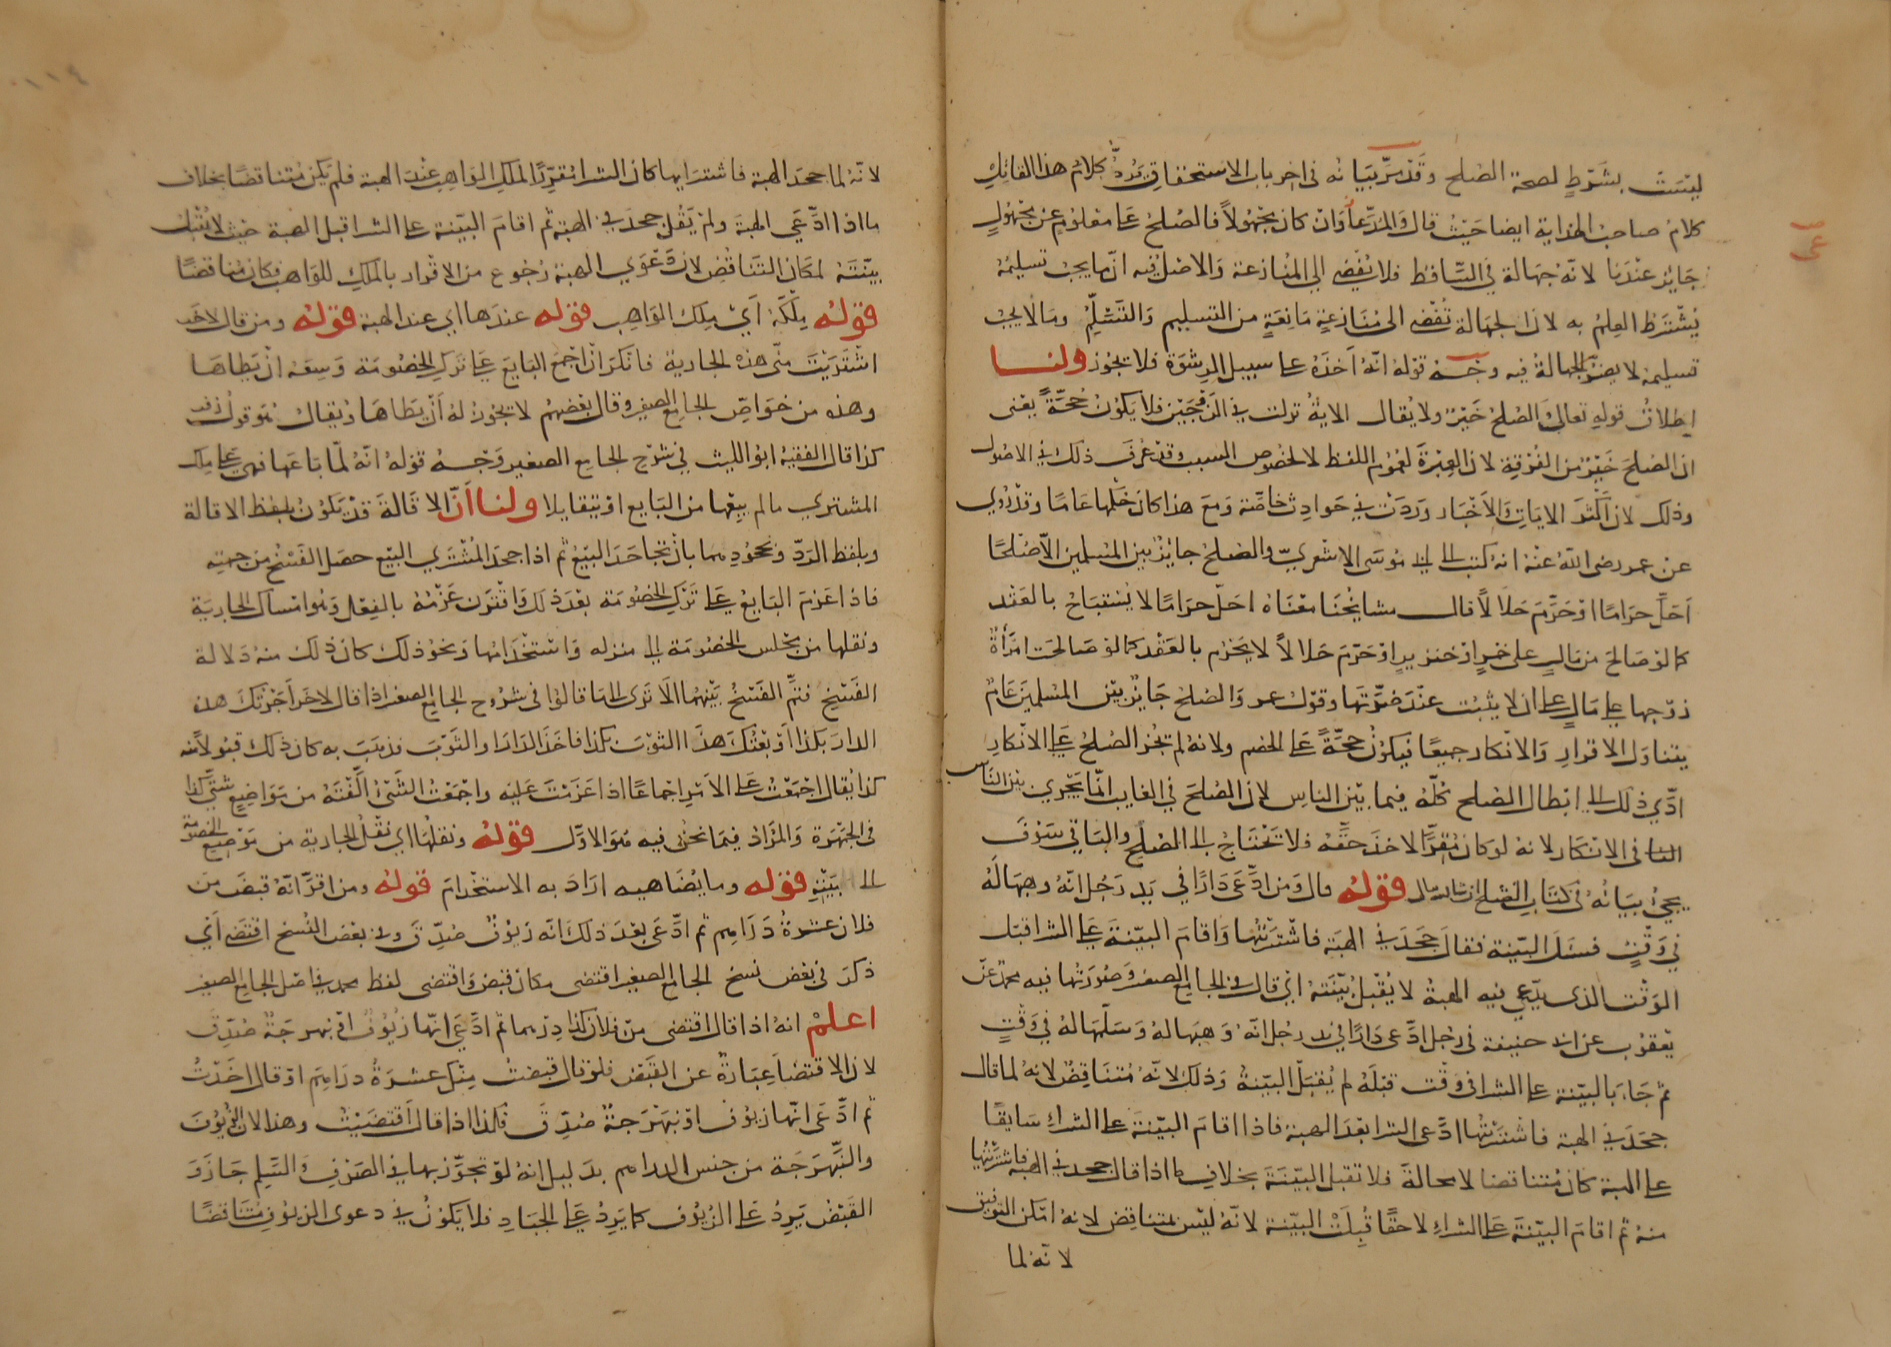 ليست بشرط لصحة الصلح وقد مر بيانه في اخر باب الاستحقاق يردّ كلام هذا القائل
كلام صاحب الهداية ايضا حيث قال والمدعا وان كان مجهولاً فالصلح على معلوم عن مجهول
جايز عندنا لانه جهالة في الساقط فلا تفضي الى المنازعة والاصل فيه ان ما يجب تسليمه
يشترط العلم به لان الجهالة تفضي الى منازعة مانعة من التسليم والتسلّم وما لا يجب
تسليمه لا يضر الجهالة فيه وجه قوله انه اخذه على سبيل الرشوة فلا يجوز ولنا
اطلاق قوله تعالى الصلح خير ولا يقال الاية نزلت في الزوجين فلا يكون حجة يعنى
ان الصلح خير من الفرقة لان العبرة لعموم اللفظ لا لخصوص السبب وقد عرف ذلك في الاصول
وذلك لان اكثر الايات والاخبار وردت في حوادث خاصة ومع هذا كان حكمها عاما وقد روي
عن عمر رضى الله عنه انه كتب الى ابي موسى الاشعري والصلح جايز بين المسلمين الا صلحا
احل حراما او حرّم حلالاً قال مشايخنا معناه احل حراما لا يستباح بالعقد
كما لو صالح من مال على خمر او خنزير او حرّم حلالاً لا يحرم بالعقد كما لو صالحت امرأة
زوجها على مال على ان لا يثبت عند ضرتها وقول عمر والصلح جايز بين المسلمين عام
يتناول الاقرار والانكار جميعا فيكون حجة على الخصم ولانه لو لم يجز الصلح على الانكار
ادّي ذلك الى ابطال الصلح كله فيما بين الناس لان الصلح في الغالب انما يجري بين الناس
في الانكار لانه لو كان مقرًّا لاخذ حقه فلا تحتاج الى الصلح والباقي سوف
يجئ بيانه في كتاب الصلح ان شاء الله تعالى قوله قال ومن ادعى دارا في يد رجل انه وهبها له
في وقت فسئل البينة فقال جحدني الهبة فاشتريتها واقام البينة على الشرا قبل
الوقت الذى يدّعي فيه الهبة لا يقبل بينته اي قال في الجامع الصغير وصورتها فيه محمد عن
يعقوب عن ابي حنيفة في رجل ادعى دارا في يد رجل انه وهبها له وسلمها له في وقت
ثم جاء بالبينة على الشرا في وقت قبله لم يقبل البينة وذلك لانه متناقض لانه لما قال
جحدني الهبة فاشتريتها ادعى الشرا بعد الهبة فاذا اقام البينة على الشراء سابقا
على الهبة كان متناقضا لا محالة فلا تقبل البينة بخلاف ما اذا قال جحدني الهبة فاشتريتها
منه ثم اقام البينة على الشراء لاحقا قبلت البينة لانه ليس بمتناقض لانه امكن التوفيق
لانه لما
لانه لما جحد الهبة فاشترايها كان الشرا مقررا لملك الواهب عند الهبة فلم يكن متناقضا بخلاف
ما اذا ادّعي الهبة ولم يقل جحدني الهبة ثم اقام البينة على الشرا قبل الهبة حيث لا تقبل
بينته لمكان التناقض لان دعوي الهبة رجوع من الاقرار بالملك للواهب فكان متناقضا
قوله ملكه اي ملك الواهب قوله عندها اي عند الهبة قوله ومن قال لاخر
اشتريت منى هذه الجارية فانكر ان اجمع البايع على ترك الخصومة وسعه ان يطاها
وهذه من خواص الجامع الصغير وقال بعضهم لا يجوز له أن يطاها ويقال هو قول زفر
كذا قال الفقيه ابو الليث في شرح الجامع الصغير وجه قوله انه لما باعها فهي على ملك
المشتري ما لم يبعها من البايع او يتقايلا ولنا أن الاقالة قد تكون بلفظ الاقالة
وبلفظ الردّ ونحوهما بان تجاحد البيع ثم اذا جحد المشتري البيع حصل الفسخ من جهته
فاذا عزم البايع على ترك الخصومة بعد ذلك واقترن عزمه بالفعل وهو امساك الجارية
ونقلها من مجلس الخصومة الى منزله واستخدامها ونحو ذلك كان ذلك منه دلالة
الفسخ فتم الفسخ بينهما الا ترى الى ما قالوا في شروح الجامع الصغير اذا قال لاخر اجرتك هذه
الدار بكذا او بعتك هذا الثوب بكذا فاخذ الدار والثوب فذهب به كان ذلك قبولا منه
كذا يقال اجمعت على الامر اجماعا اذا عزمت عليه واجمعت الشئ الفته من مواضع شتى كذا
في الجمهرة والمراد فيما نحن فيه هو الاول قوله ونقلها اي نقل الجارية من موضع الخصومة
الى بيته قوله وما يضاهيه اراد به الاستخدام قوله ومن اقر انه قبض من
فلان عشرة دراهم ثم ادعى بعد ذلك انه زيوف صدق وفي بعض النسخ اقتضى اي
ذكر في بعض نسخ الجامع الصغير اقتضى مكان قبض واقتضى لفظ محمد في اصل الجامع الصغير
اعلم انه اذا قال اقتضى من فلان كذا درهما ثم ادعى انها زيوف او نبهرجة صدق
لان الاقتضا عبارة عن القبض فلو قال قبضت منك عشرة دراهم او قال اخذت
ثم ادعى انها زيوف او نبهرجة صدق فكذا اذا قال اقتضيت وهذا لان الزيوف
والنبهرجة من جنس الدراهم بدليل انه لو تجوز بها في الصرف والسلم جاز و
القبض يرد على الزيوف كما يرد على الجياد فلا يكون في دعوى الزيوف متناقضا